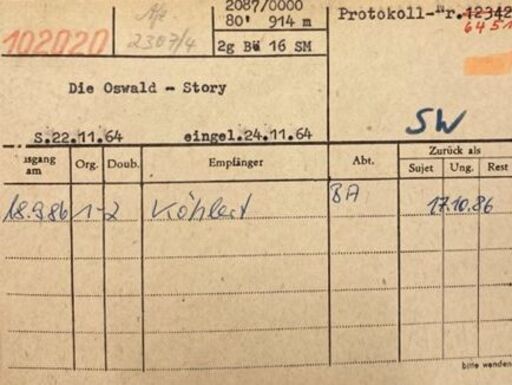 2087/0000
80' 914 m
Protokoll-Nr. 12342
6451
102020
2307/4
2g Bü 16 SM
Die Oswald - Story
SW
S.22.11.64 eingel.24.11.64
usgang am Org. Doub. Empfänger Abt. Zurück als
Sujet Ung. Rest
18.9.86 1-2 Köhlert BA 17.10.86
bitte wenden